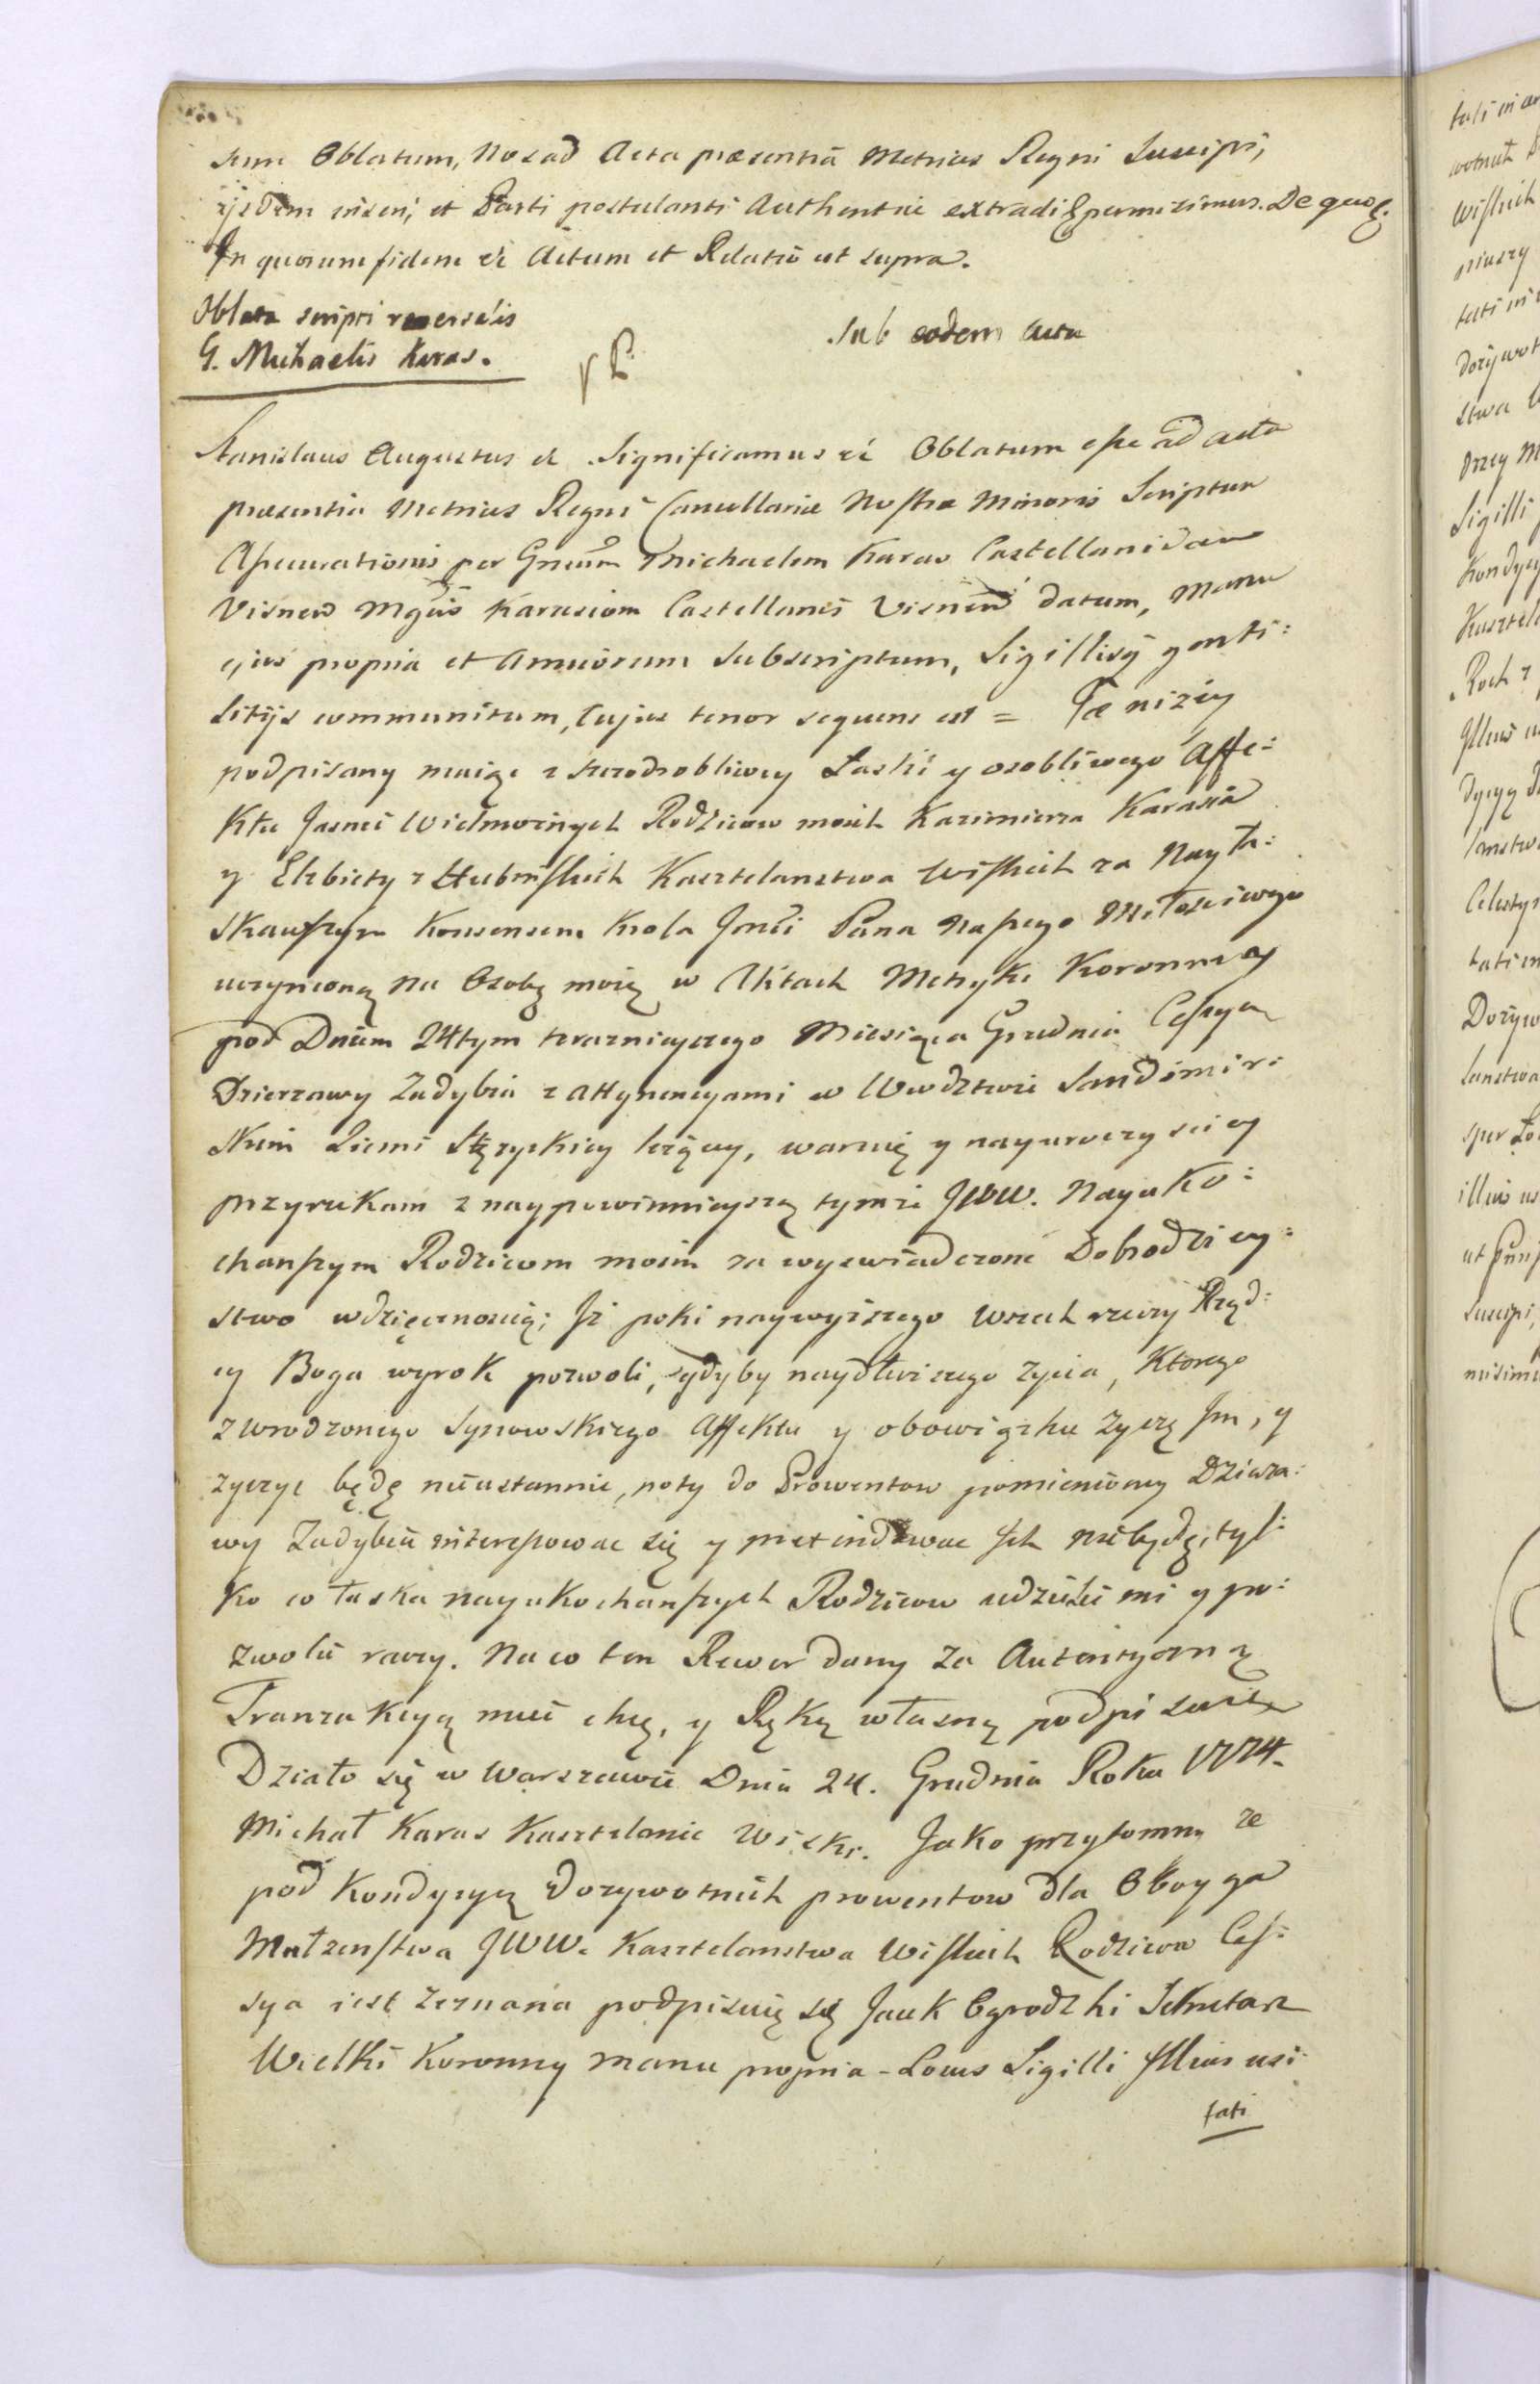 sum Oblatum, Nos ad Acta præsentiā Metrices Regni Suscipi,
ijsdem inseri, et Parti postulanti Authentice extradi permisimus. De quo
In quorum fidem &c Actum et Relatio ut supra.
Oblata scripti reversalis
G. Michaelis Karas.
Sub eodem Actu
Stanislaus Augustus &c Significamus &c Oblatum esse ad acta
præsentia Metrices Regni Cancellariæ Nostræ Minoris Scriptum
Assecurationis per Gnēum Michaelem Karas Castellanidam
Visnen Mgcis Karasiom Castellanis Visnen datum, Manu
ejus propria et Amicorum Subscriptum, Sigillisq genti:
litijs communitum, Cujus tenor sequens est = Ja niżey
podpisany maiąc z szczodrobliwey Łaski y osobliwego Affe:
Ktu Jasnei Wielmożnych Rodzicow moich Kazimierza Karasia
y Elzbiety z Kasztelanstwa Wiskich za Nayła:
Skawszym Konsensem Krola Jmći Pana Naszego Miłosciwego
uczynioną na Osobę moię w Aktach Metryki Koronney
pod Dniem 24tym teraznieyszego Miesiąca Grudnia Cessyą
Dzierzawy Zadybia z Attynencyami w Wwdztwie Sandomir:
Skim Ziemi Stęzyckiey leżącey, waruię y nayuroczysciey
przyrzekam z naypowinnieyszą tymże JWW. Nayuko:
chanszym Rodzicom moim za wyswiadczone Dobrodziey:
stwo wdzięcznoscią; Jż poki naywyższego wszech rzeczy Rząd:
cy Boga wyrok pozwoli, gdyby naydłuższego życia, Ktorego
z wrodzonego Synowskiego Affektu y obowiązku życzę Jm, y
życzyc będę nieustannie, poty do Prowentow pomienioney Dzierza:
wy Zadybia interessowac się y pretendowac Jch nie będę, tyl:
Ko co łaska nayukochanszych Rodzicow udzieli mi y po:
zwolić raczy. Na co ten Rewers dany za Autentyczną
Tranzakcyą mieć chcę, y Ręką własną podpisuię
Działo się w Warszawie Dnia 24. Grudnia Roku 1774.
Michał Karas Kasztelanic Wiski. Jako przytomny ze
pod Kondycyą Dozywotnich prowentow dla Oboyga
Małzenstwa JWW. Kasztelanstwa Wiskich Rodzicow Ces:
sya iest zeznana podpisuię się Jacek Ogrodzki Sekretarz
Wielki Koronny manu propria - Locus Sigilli Illius usi
tati